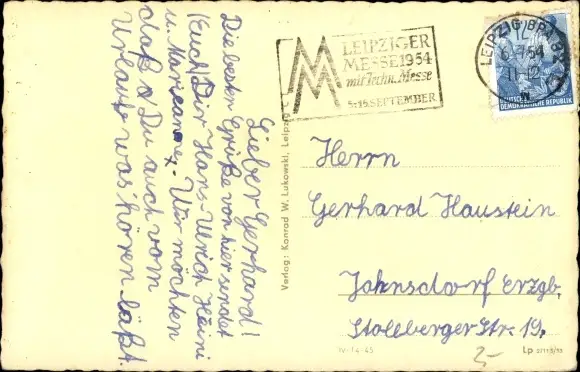 Lieber Gerhard!
Die besten Grüße von hier sendet
(Euch) Dir Hans-Ulrich Heini
u. Marianne. Wir möchten
daß Du auch vom
Urlaub was hören läßt.
Verlag: Konrad W. Lukowski, Leipzig
MM
LEIPZIGER
MESSE 1954
mit Techn. Messe
5.-15. SEPTEMBER
LEIPZIG BPA 32
54
11-12
DEUTSCHE
DEMOKRATISCHE REPUBLIK
Herrn
Gerhard Haustein
Jahnsdorf Erzgb.
Stollberger Str. 19.
IV-14-45
Lp
2,-